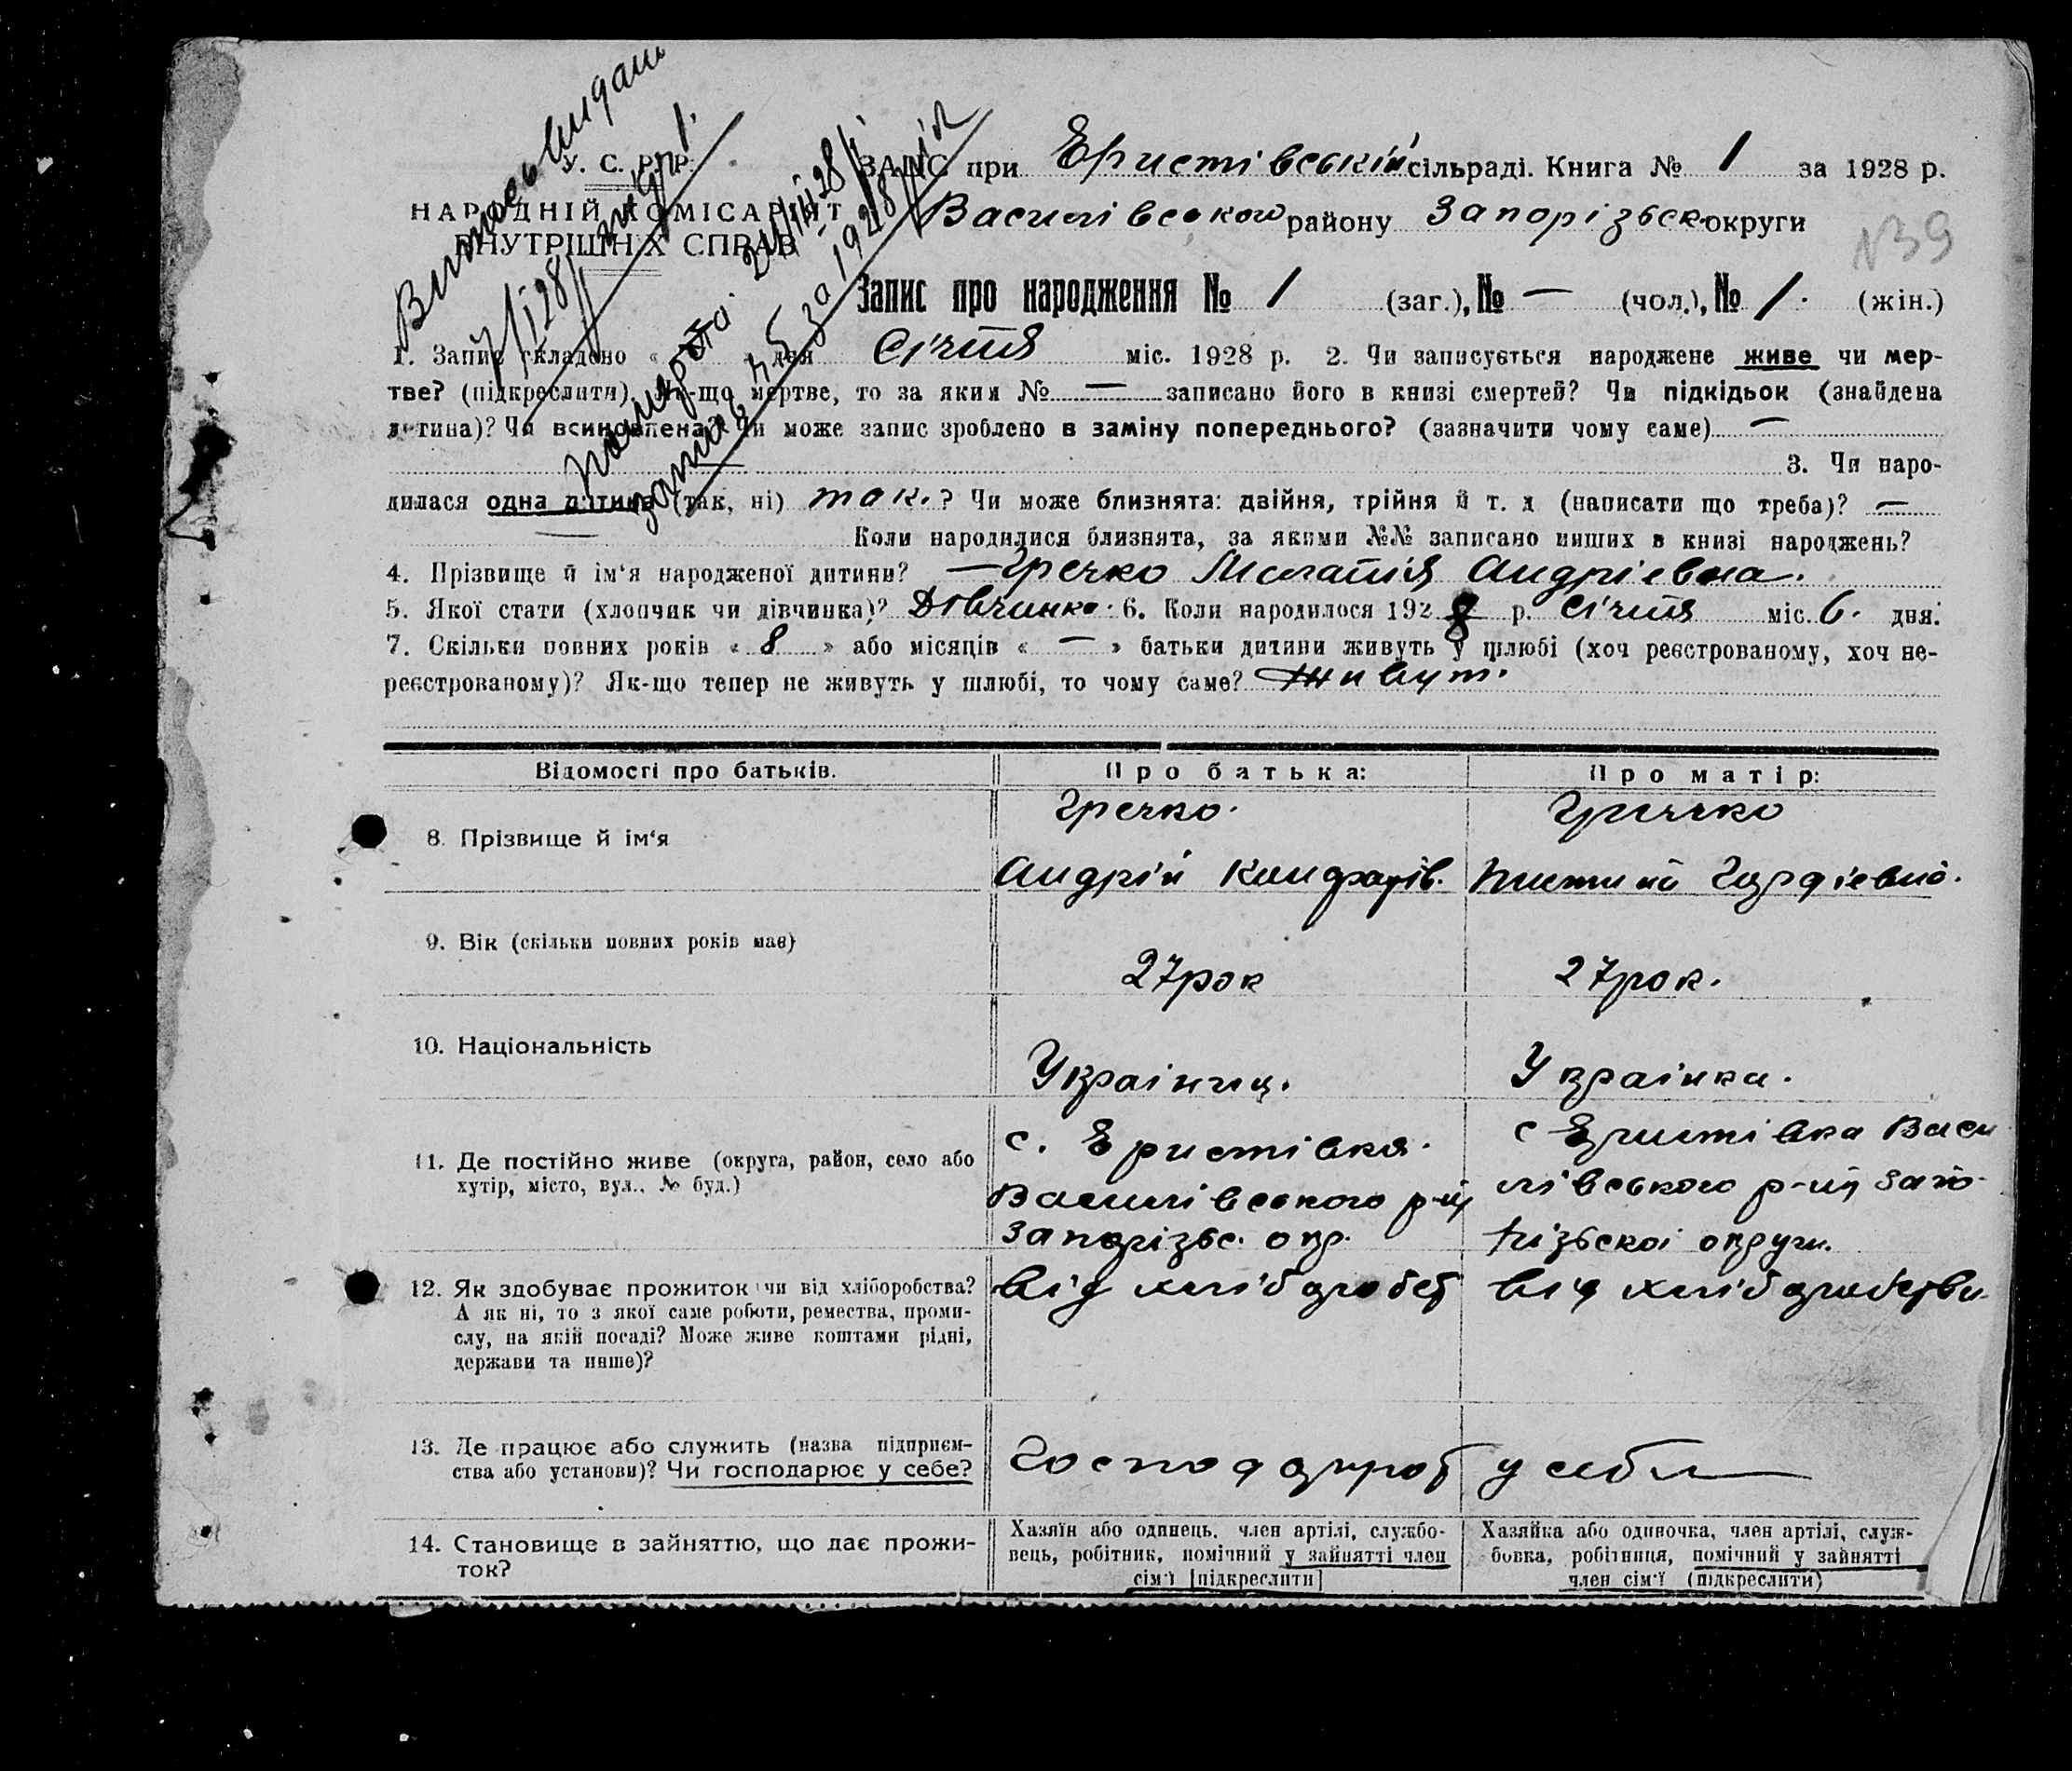 Витяг видан
7/I 28 № 1.
померла 24/III 28 р.
запис 45 за 1928 рік
У. С. Р. Р.
НАРОДНІЙ КОМІСАРІЯТ
ВНУТРІШНІХ СПРАВ
ЗАПС при Еристівській сільраді. Книга № 1 за 1928 р.
Василівського району Запорізьск округи
N39
Запис про народження № 1 (заг.), № — (чол.), № 1. (жін.)
1. Запис складено « дня Січня міс. 1928 р. 2. Чи записується народжене живе чи мер-
тве? (підкреслити). Як-що мертве, то за яким № — записано його в книзі смертей? Чи підкідьок (знайдена
дитина)? Чи всиновлена? Чи може запис зроблено в заміну попереднього? (зазначити чому саме) —
3. Чи наро-
дилася одна дитина (так, ні) так. ? Чи може близнята: двійня, трійня й т. д (написати що треба)? —
— Коли народилися близнята, за якими №№ записано инших в книзі народжень?
4. Прізвище й ім‘я народженої дитини? — Гречко Андрієвна.
5. Якої стати (хлопчик чи дівчинка)? Дівчинка. 6. Коли народилося 1928 р. Січня міс. 6. дня.
7. Скільки повних років « 8 » або місяців « — » батьки дитини живуть у шлюбі (хоч реєстрованому, хоч не-
реєстрованому)? Як-що тепер не живуть у шлюбі, то чому саме? Живут.
Відомості про батьків. Про батька: Про матір:
8. Прізвище й ім‘я
Гречко. Гричко
Андрій Кондратів. Гордієвна.
9. Вік (скільки повних років має)
27 рок 27 рок.
10. Національність
Украінец. Украінка.
11. Де постійно живе (округа, район, село або
хутір, місто, вул., № буд.)
с. Еристівка. с Еристівка Васи
Василівського р-ну лівського р-ну Запо-
Запорізьс. окр. різьскоі округи.
12. Як здобуває прожиток чи від хліборобства?
А як ні, то з якої саме роботи, ремества, проми-
слу, на якій посаді? Може живе коштами рідні,
держави та инше)?
від хліборобст від хліборобства
13. Де працює або служить (назва підприєм-
ства або установи)? Чи господарює у себе?
у себе
14. Становище в зайняттю, що дає прожи-
ток?
Хазяїн або одинець, член артілі, службо-
вець, робітник, помічний у зайнятті член
сім‘ї [підкреслити]
Хазяйка або одиночка, член артілі, служ-
бовка, робітниця, помічний у зайнятті
член сім‘ї (підкреслити)